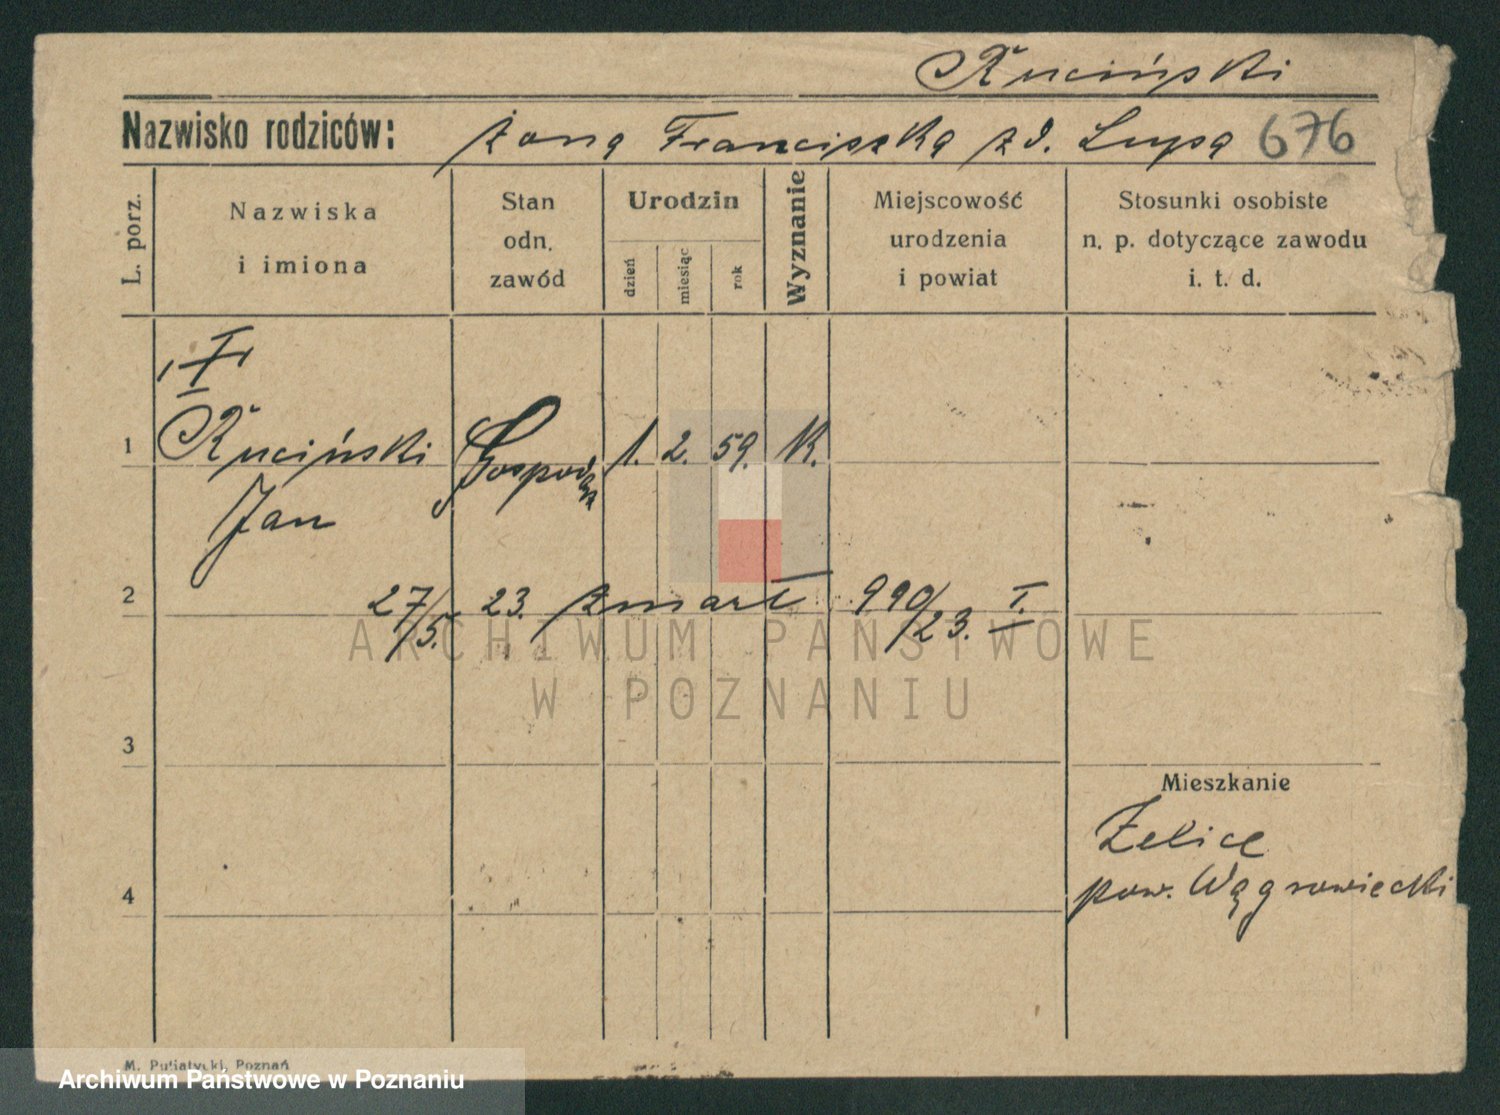 Kuciński
Nazwisko rodziców: żona Franciszka zd. Lupa 676
L. porz.
Nazwiska
i imiona
Stan
odn.
zawód
Urodzin
dzień
miesiąc
rok
Wyznanie
Miejscowość
urodzenia
i powiat
Stosunki osobiste
n. p. dotyczące zawodu
i. t. d.
1 Kuciński Gospodarz 1. 2. 59. K.
Jan
2 27/5. 23. zmarł 990/23. I.
3
Mieszkanie
Zelice
4 pow. Wągrowiecki
ARCHIWUM PAŃSTWOWE
W POZNANIU
M. Putiatycki, Poznań
Archiwum Państwowe w Poznaniu